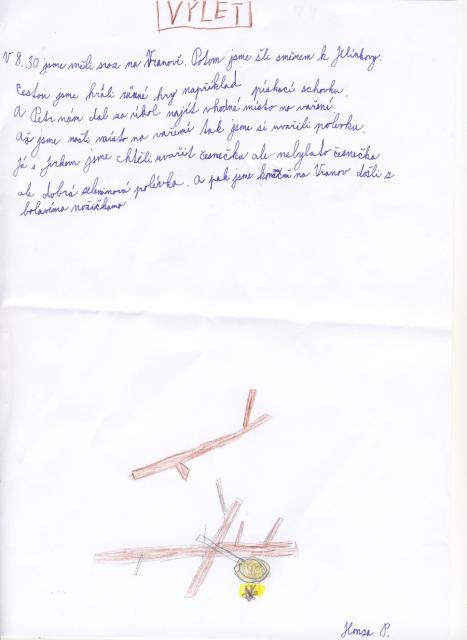 VÝLET
V 8.30 jsme měli sraz na Vranově. Potom jsme šli směrem k Jelínkovy.
Cestou jsme hráli různé hry například pískací schovku.
A Petr nám dal za úkol najít vhodné místo na vaření
Až jsme našli místo na vaření tak jsme si uvařili polévku.
Já s jsme chtěli uvařit česnečku ale nebyla to česnečka
ale dobrá zeleninová polévka. A pak jsme konečně na Vranov došli s
bolavíma nožičkama
Honza P.